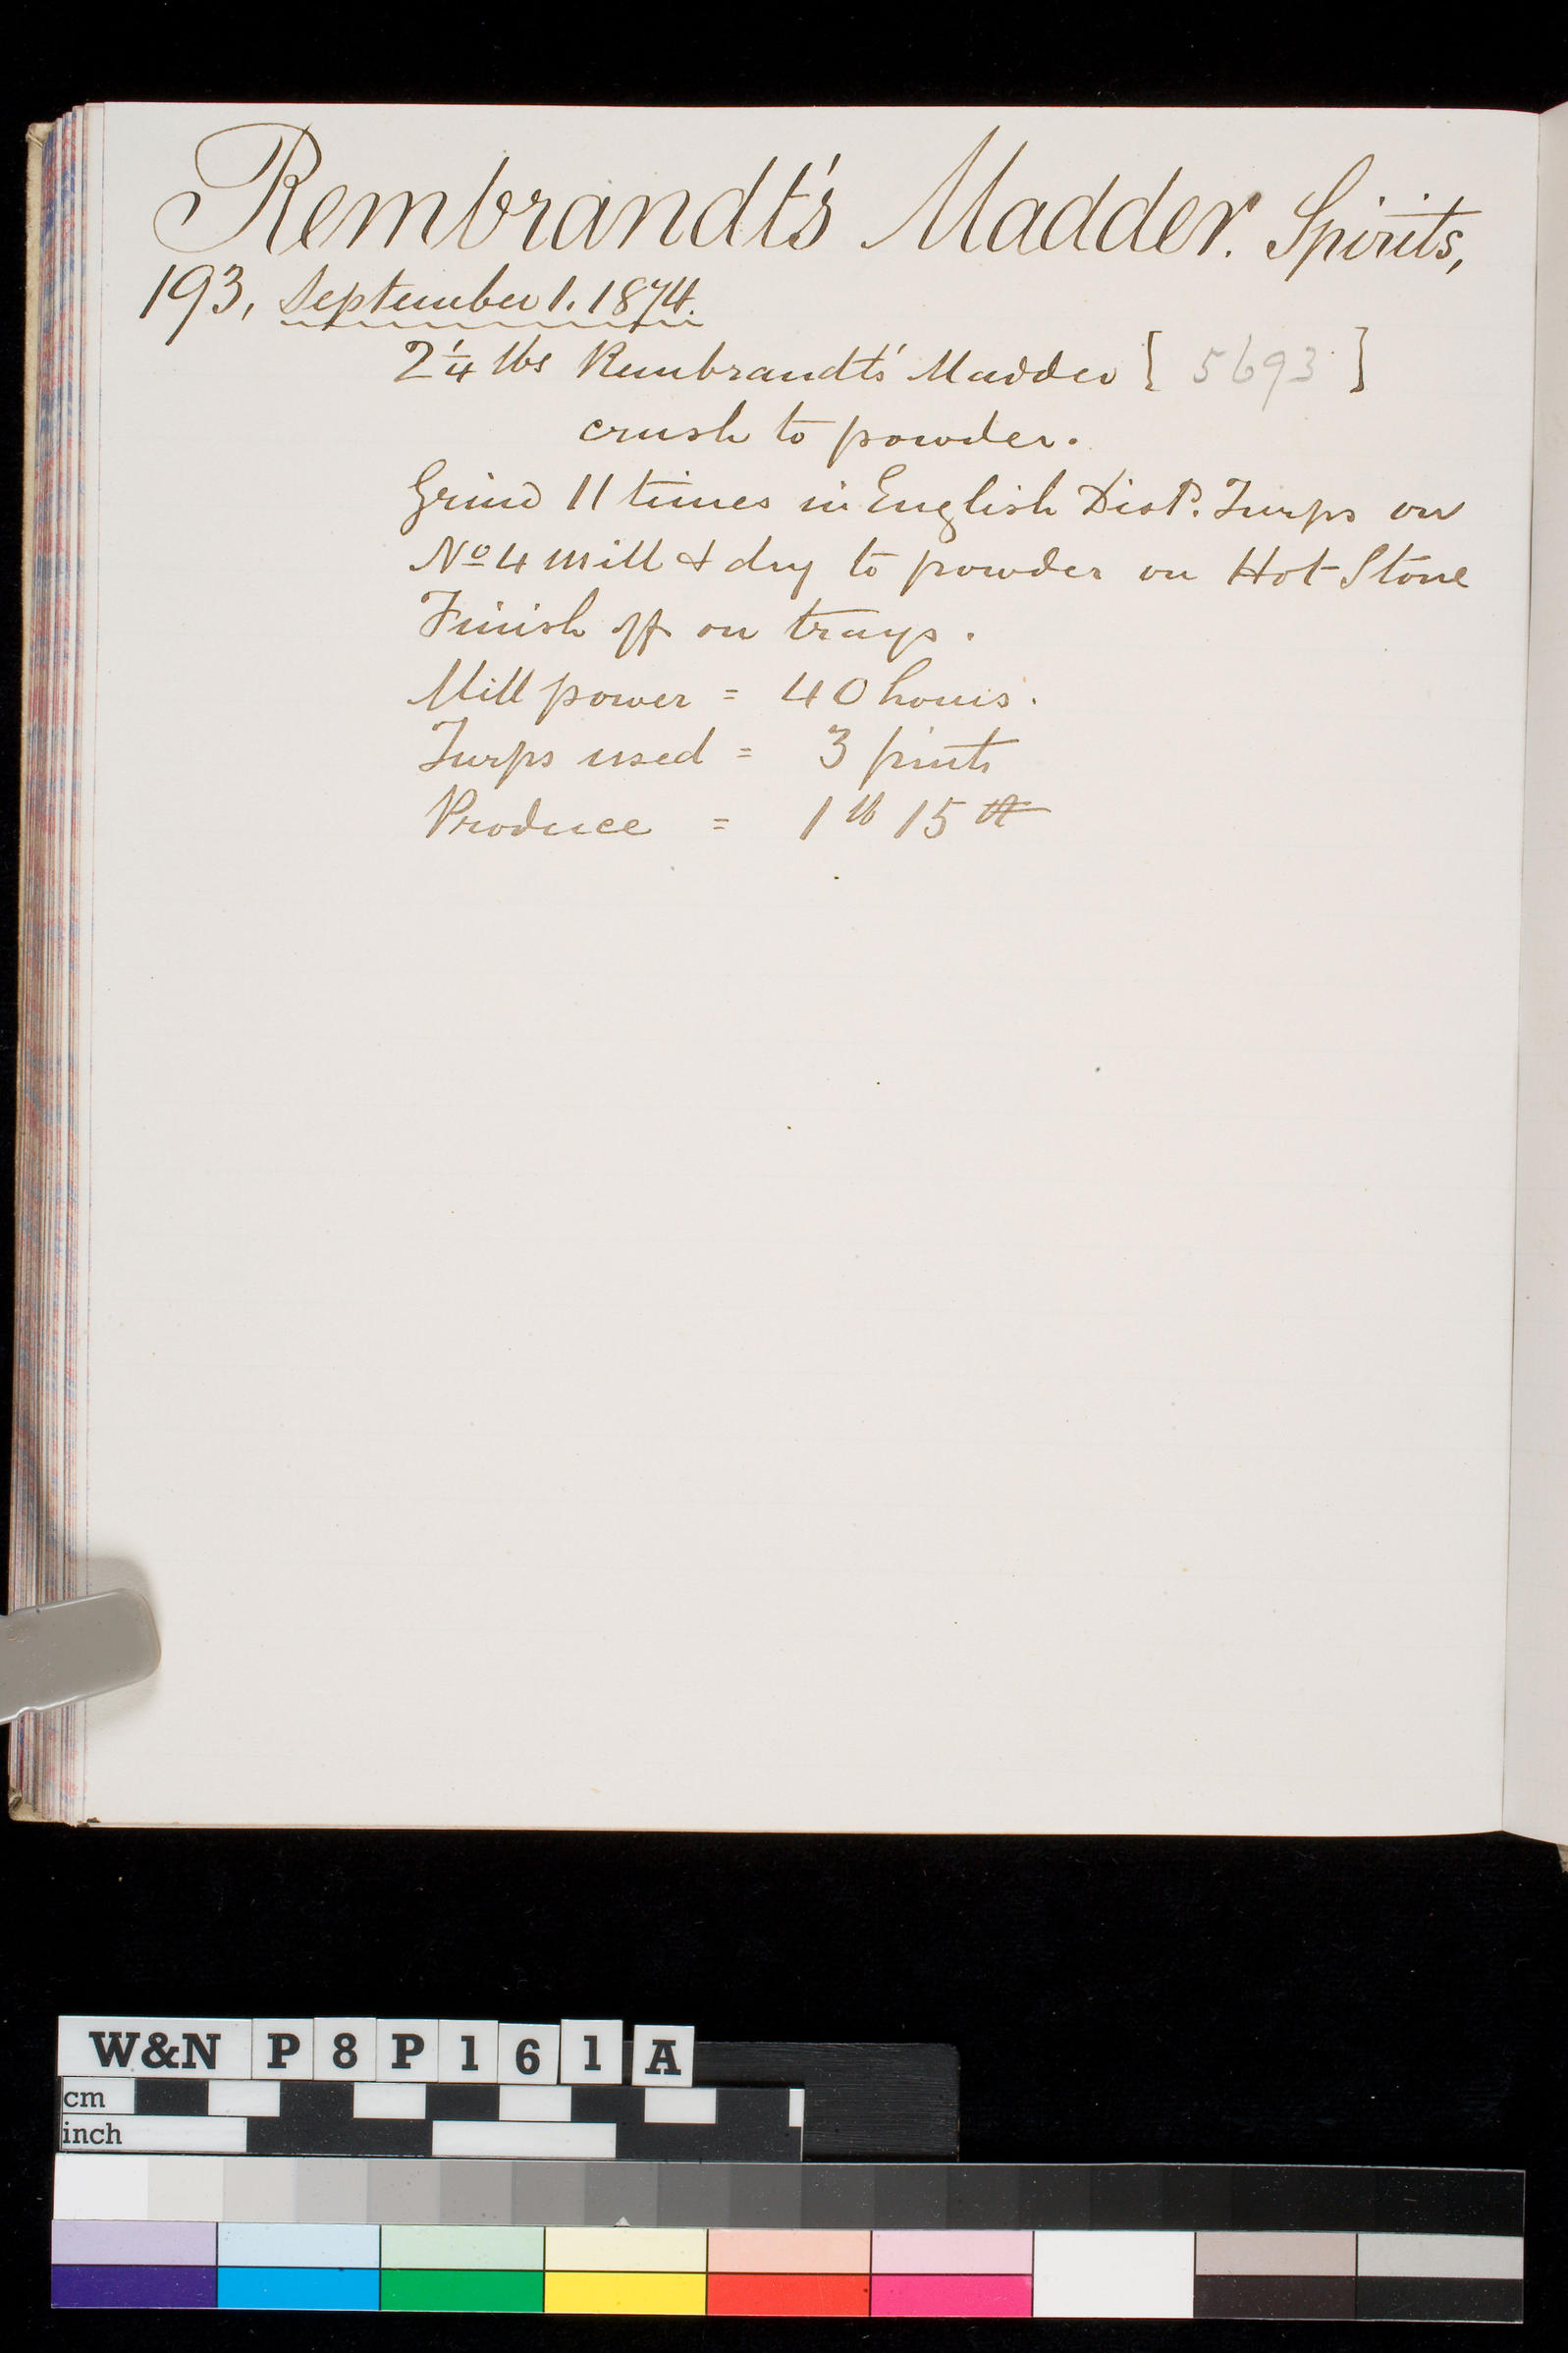 Rembrandt's Madder. Spirits,
193, September 1. 1874.
2 1/4 lbs Rembrandts' Madder [ 5693 ]
crush to powder.
Grind 11 times in English Dist^d. Turps on
No 4 Mill & dry to powder on Hot Stone
Finish off on trays.
Mill power = 40 hours.
Turps used = 3 pints
Produce = 1 lb 15
W&N P8P161A
cm
inch